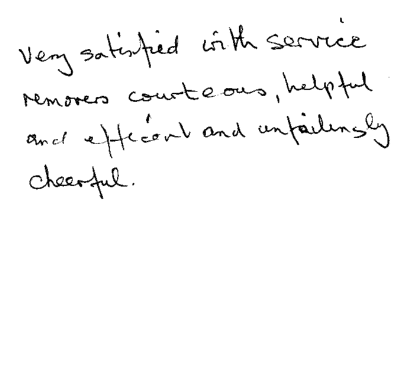 Very satisfied with service
removers courteous, helpful
and efficient and unfailingly
cheerful.